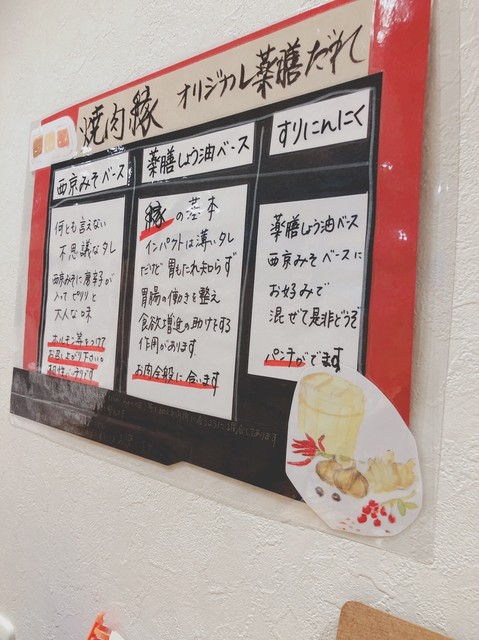 焼肉縁 オリジナル薬膳だれ
西京みそベース
何とも言えない
不思議なタレ
西京みそに唐辛子が
入ってピリリと
大人な味
ホルモン等をつけて
お召し上がり下さい
相性バッチリです
薬膳しょう油ベース
縁の基本
インパクトは薄いタレ
だけど胃もたれ知らず
胃腸の働きを整え
食欲増進の助けをする
作用があります
お肉全般に合います
すりにんにく
薬膳しょう油ベース
西京みそベースに
お好みで
混ぜて是非どうぞ
パンチがでます